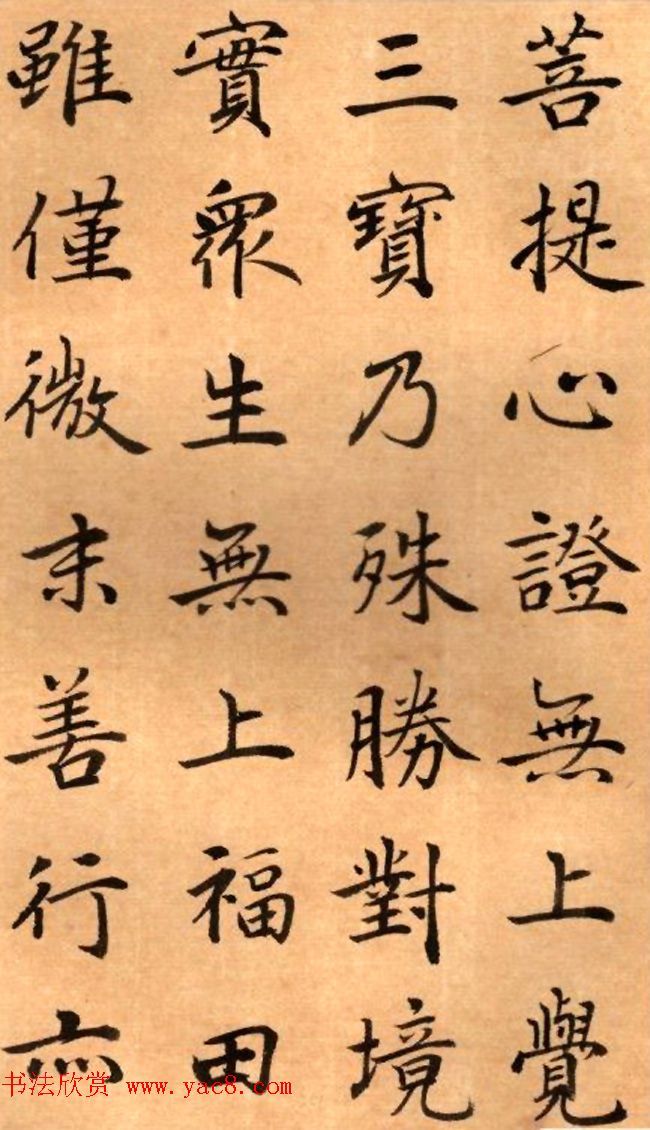 菩提心證無上覺
三寶乃殊勝對境
實眾生無上福田
雖僅微末善行亦
书法欣赏 www.yac8.com